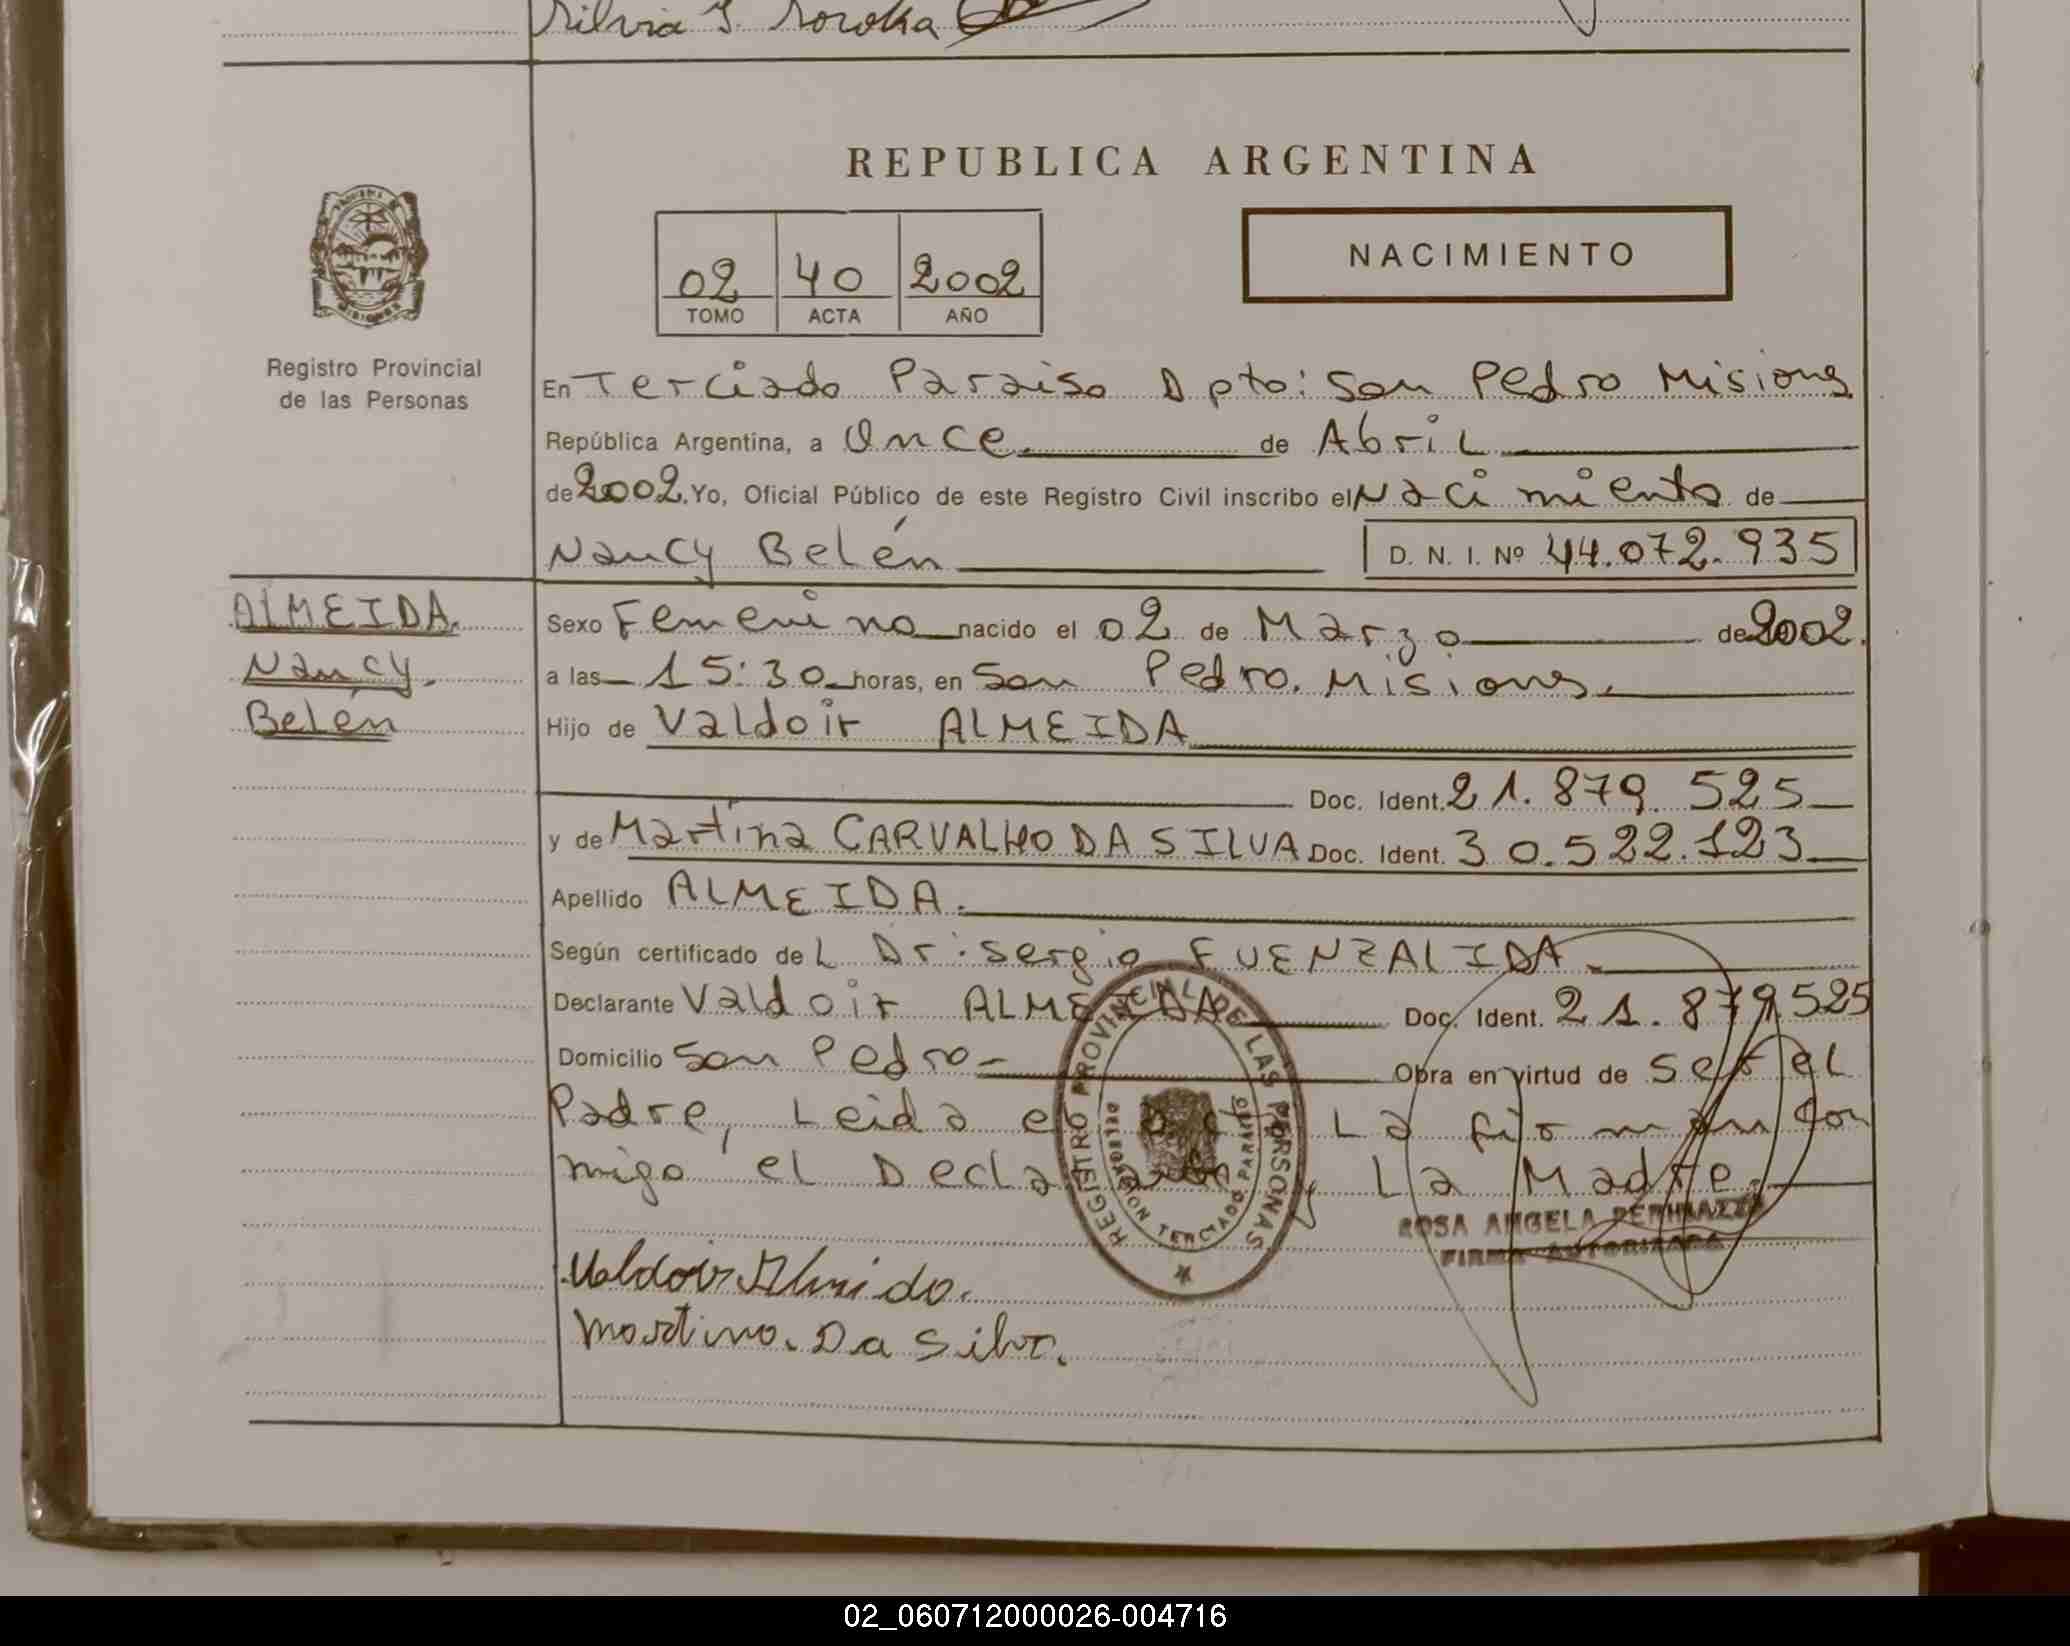 Silvia
REPUBLICA ARGENTINA
02 40 2002
TOMO ACTA AÑO
NACIMIENTO
MISIONES
Registro Provincial
de las Personas
En Terciado Paraiso Dpto: San Pedro Misiones
República Argentina, a Once de Abril
de 2002. Yo, Oficial Público de este Registro Civil inscribo el Nacimiento de
Nancy Belén D. N. I. Nº 44.072.935
ALMEIDA.
Nancy.
Belén
Sexo Femenino nacido el 02 de Marzo de 2002.
a las 15:30 horas, en San Pedro. Misiones.
Hijo de Valdoir ALMEIDA
Doc. Ident. 21.879.525
y de Martina CARVALHO DA SILVA Doc. Ident. 30.522.123
Apellido ALMEIDA.
Según certificado de L Dr: Sergio FUENZALIDA.
Declarante Valdoir ALMEIDA Doc. Ident. 21.879.525
Domicilio San Pedro Obra en virtud de ser el
Padre, Leida el acta La firman con
migo el Declarante y La Madre.
REGISTRO PROVINCIAL DE LAS PERSONAS
DELEGACION TERCIADO PARAISO
ROSA ANGELA
FIRMA AUTORIZADA
Valdoir Almeida.
Martina. Da Silva.
02_060712000026-004716